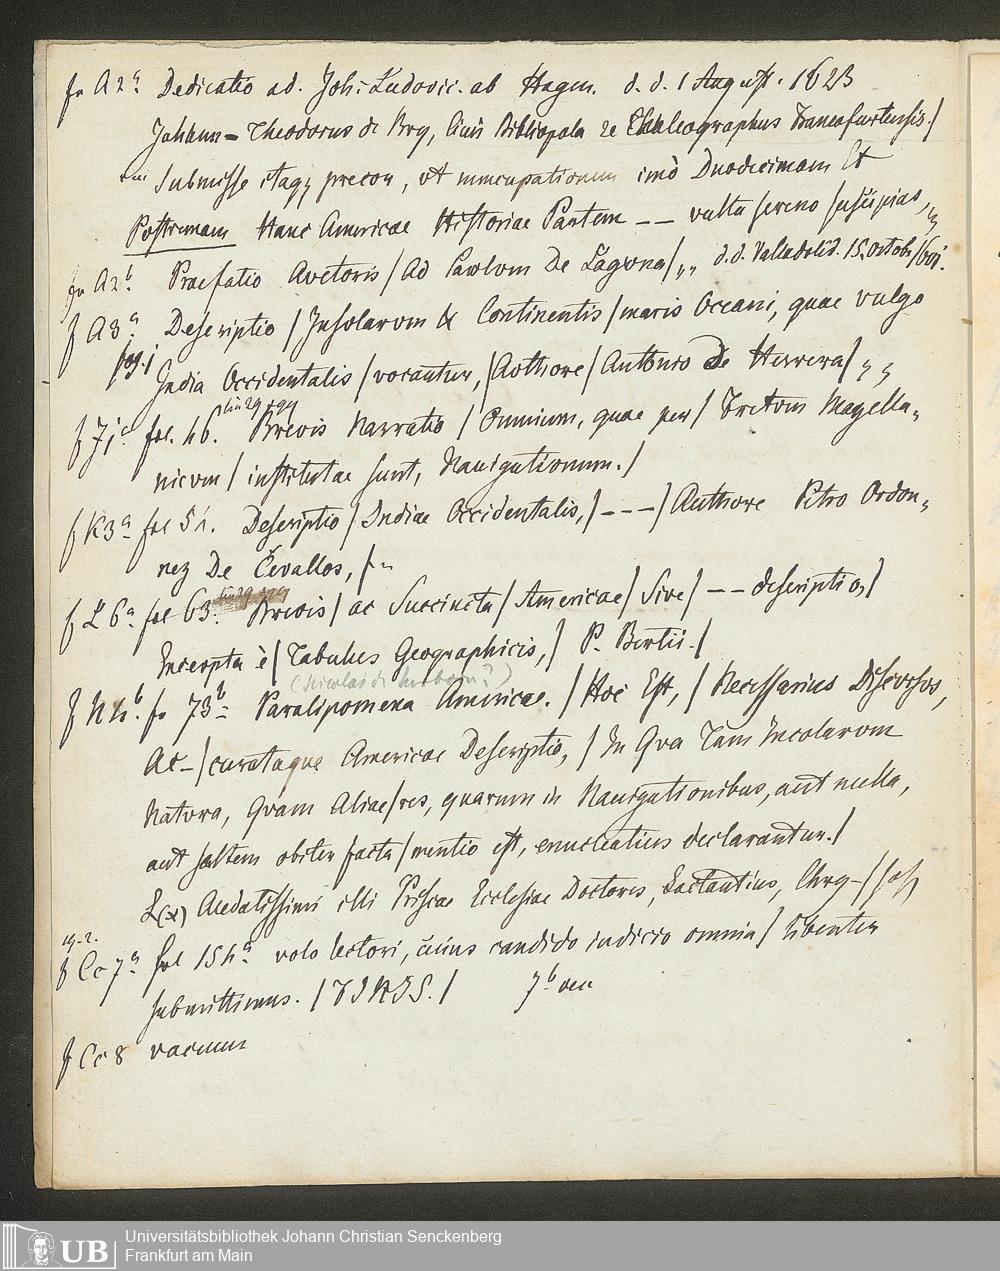 fo A 2a. Dedicatio ad. Joh: Ludovic. ab Hagen. d. d. 1 August. 1623
Johann-Theodorus de Bry, Civis Bibliopola & Chalcographus Francofurtensis./
Submisse itaq; precor, vt nuncupationum imò Duodecimam Et
Postremam Hanc Americae Historiae Partem -- vultu sereno suscipias,
fo A 2b. Praefatio Avctoris / Ad Pavlvm De Lagvna / „ d. d. Valladolid. 15. octob. 1601.
f A 3a. Descriptio / Insolarvm & Continentis / maris Oceani, quae vulgo
pag. 1
India Occidentalis / vocantur, / Avthore / Antonio De Herrera /
lin 29
f J 1 fol. 46. Brevis Narratio / Omnium, quae per / Fretvm Magella-
nicvm / institutae sunt, Nauigationum. /
f K 3a fol 51. Descriptio / Indiae Occidentalis, / --- / Authore Petro Ordon-
nez De Cevallos, /
lin 29
f L 6a fol 63. Brevis / ac Succincta / Americae / Sive / -- descriptio, /
Excerpta è / Tabulis Geographicis, / P. Bertii. /
f N 4b. fo 73b Paralipomena Americae. / Hoc Est, / Necessarius Discvrsvs,
Ac- / curataque Americae Descriptio, / In Qva Tàm Incolarvm
Natvra, Qvam Aliae / res, quarum in Nauigationibus, aut nulla,
aut saltem obiter facta / mentio est, enucleatius declarantur. /
Ecclesiae Doctores, Lactantius, Chry- / sost
f Cc 7a fol 154a. volo lectori, cuius candido iudicio omnia / libenter
submittimus. / FINIS. / 7b vac
f Cc 8 vacuum
UB
Universitätsbibliothek Johann Christian Senckenberg
Frankfurt am Main